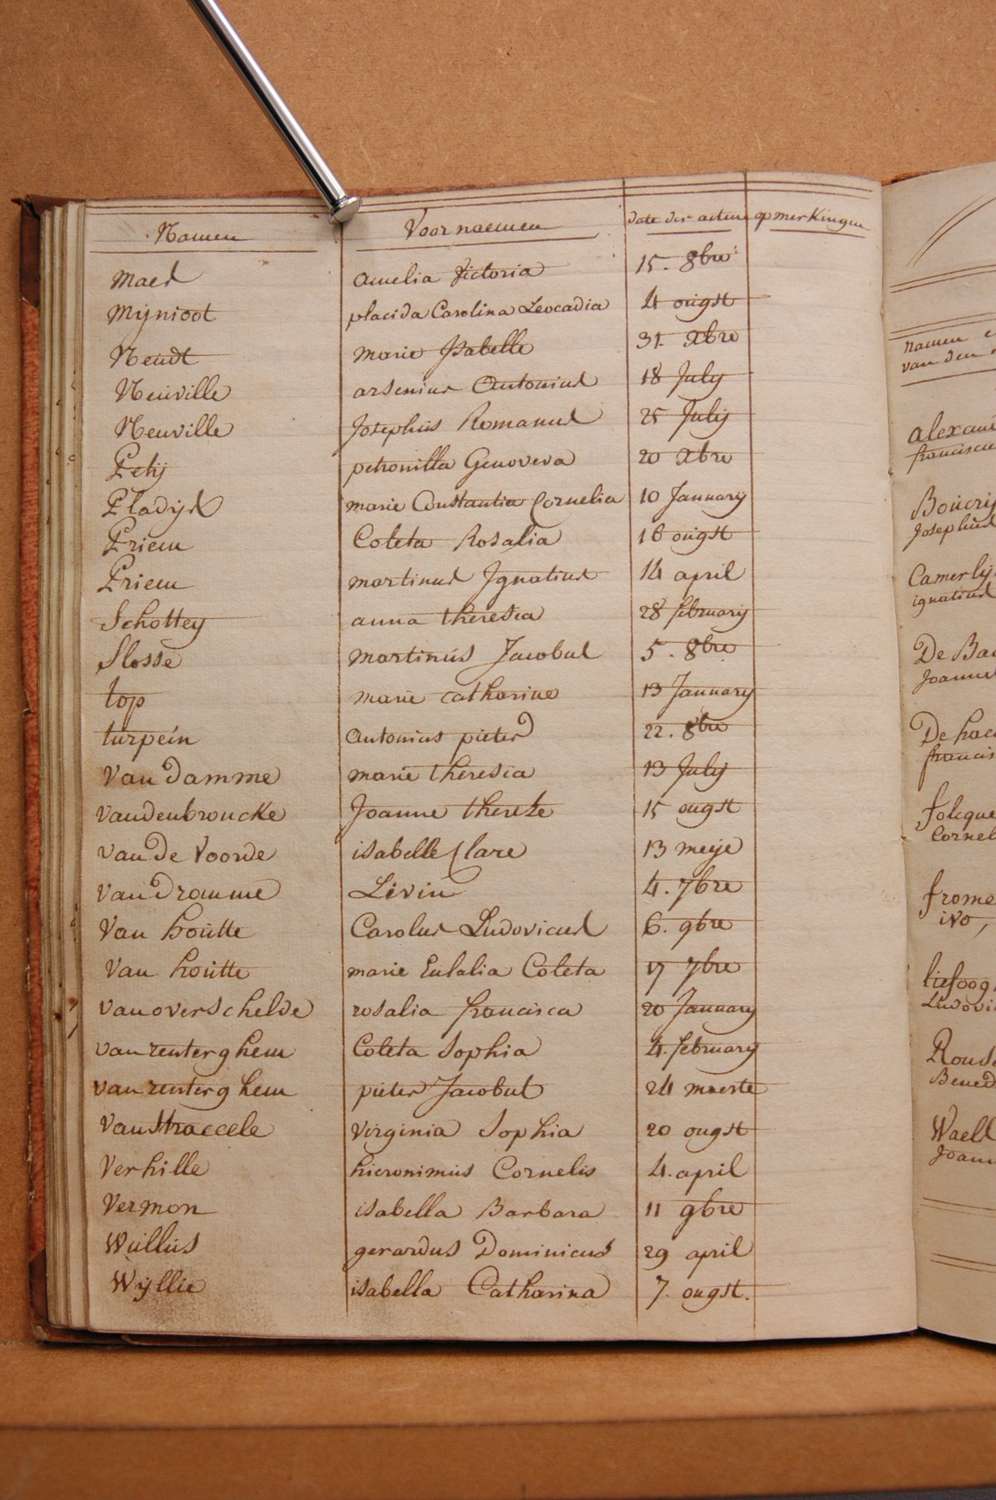 Namen Voornaemen date der acten opmerkingen
Maes amelia Victoria 15. 8bre
Mijnioot placida Carolina Leocadia 4 ougst
Neudt marie Isabelle 31. Xbre
Neuville arsenius Antonius 18 July
Neuville Josephus Romanus 25 July
Petij petronilla Genoveva 20 Xbre
Pladijs marie Constantia Cornelia 10 January
Priem Coleta Rosalia 16 ougst
Priem martinus Ignatius 14 april
Schottey anna theresia 28 february
Slosse martinus Jacobus 5. 8bre
top marie catharine 13 January
turpein antonius pieter 22. 8bre
Van Damme marie theresia 13 July
Vandenbroucke Joanne therese 15 ougst
van De Voorde isabelle Clare 13 meije
van Dromme Livin 4. 7bre
Van houtte Carolus Ludovicus 6. 9bre
Van houtte marie Eulalia Coleta 17 7bre
van overschelde rosalia francisca 20 January
van renterghem Coleta Sophia 4. february
van renterghem pieter Jacobus 24 maerte
Van Straccele Virginia Sophia 20 ougst
Verhille hieronimus Cornelis 4. april
Vermon isabella Barbara 11 9bre
Wullus gerardus Dominicus 29 april
Wyllie isabella Catharina 7. ougst.
namen
van den
ignatius
De
Joanne
De
Ludovi